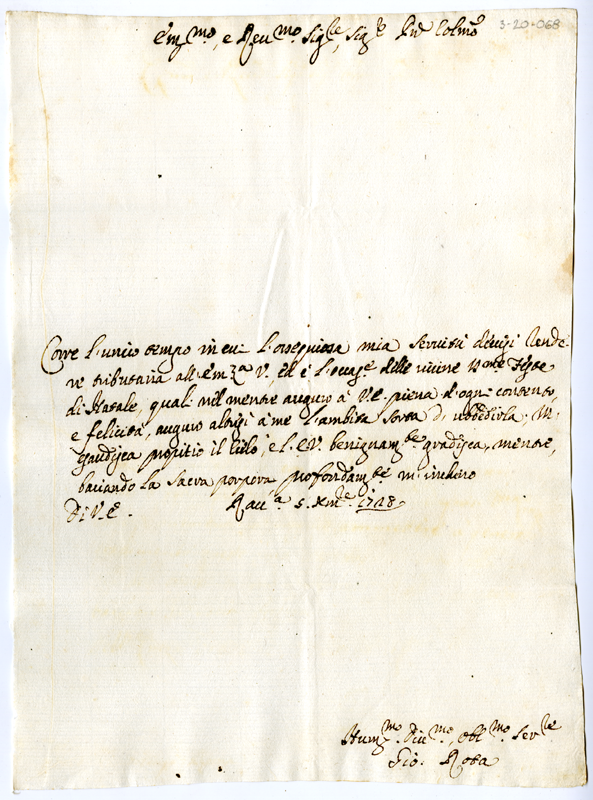 3-20-068
Em.mo, e Reu.mo Sig.re, Sig.r Pñe Colmo
Corre l'unico tempo in cui l'ossequiosa mia Servitù deuesi rende
re tributaria all'Em.za V., ed è l'occas.e delle uicine S.me Feste
di Natale, quali nel mentre auguro à V.E. piena d'ogni contento,
e felicità, auguro altresì à me l'ambita sorte di ubbidirla; M'
esaudisca propitio il Cielo, e l'E.V. benignam.te gradisca, mentre,
baciando la Sacra porpora profondam.te m'inchino
Di V.E. Rau.a 5. Xmre. 1728
Hum.mo Diu.mo, obl.mo Ser.re
Gio. Rota